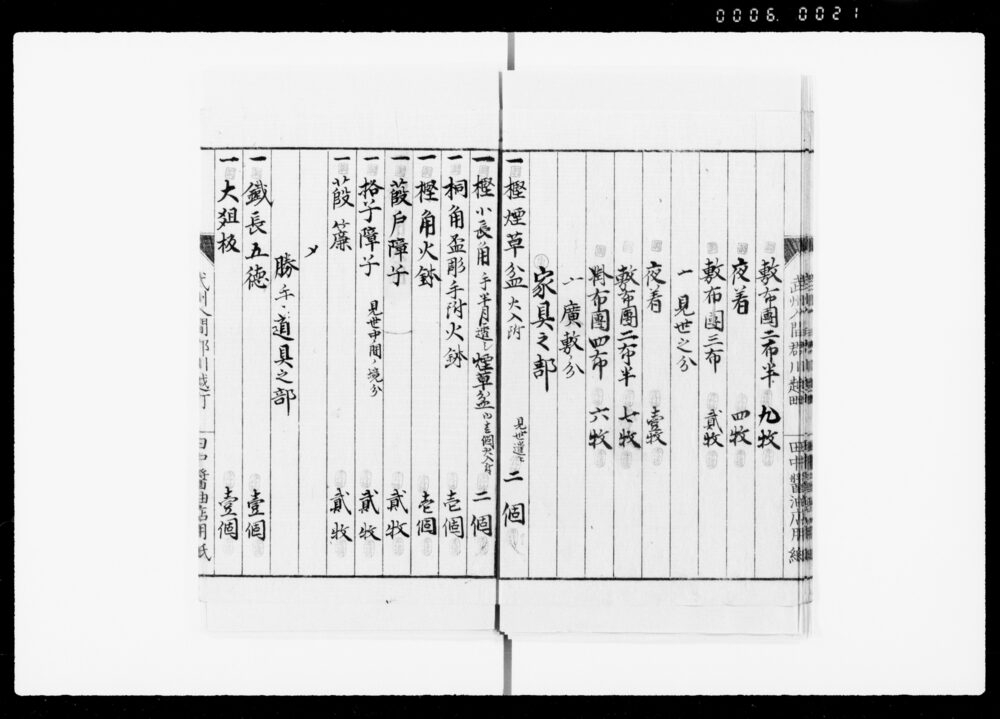 0006. 0021
敷布團二布半 九枚
夜着 四枚
敷布團三布 貳枚
一 見世之分
夜着 壹枚
敷布團二布半 七枚
肩布團四布 六枚
一 廣敷分
家具之部
一 樫煙草盆 火入附 見世遣 二個
一 樫小長角 手半月遣シ 煙草盆 二個
一 桐角盃彫手附火鉢 壱個
一 樫角火鉢 壱個
一 葭戸障子 貳枚
一 格子障子 見世中間ノ境分 貳枚
一 葭簾 貳枚
〆
勝手道具之部
一 鐵長五徳 壹個
一 大爼板 壹個
武州入間郡川越町 田中醤油店用紙